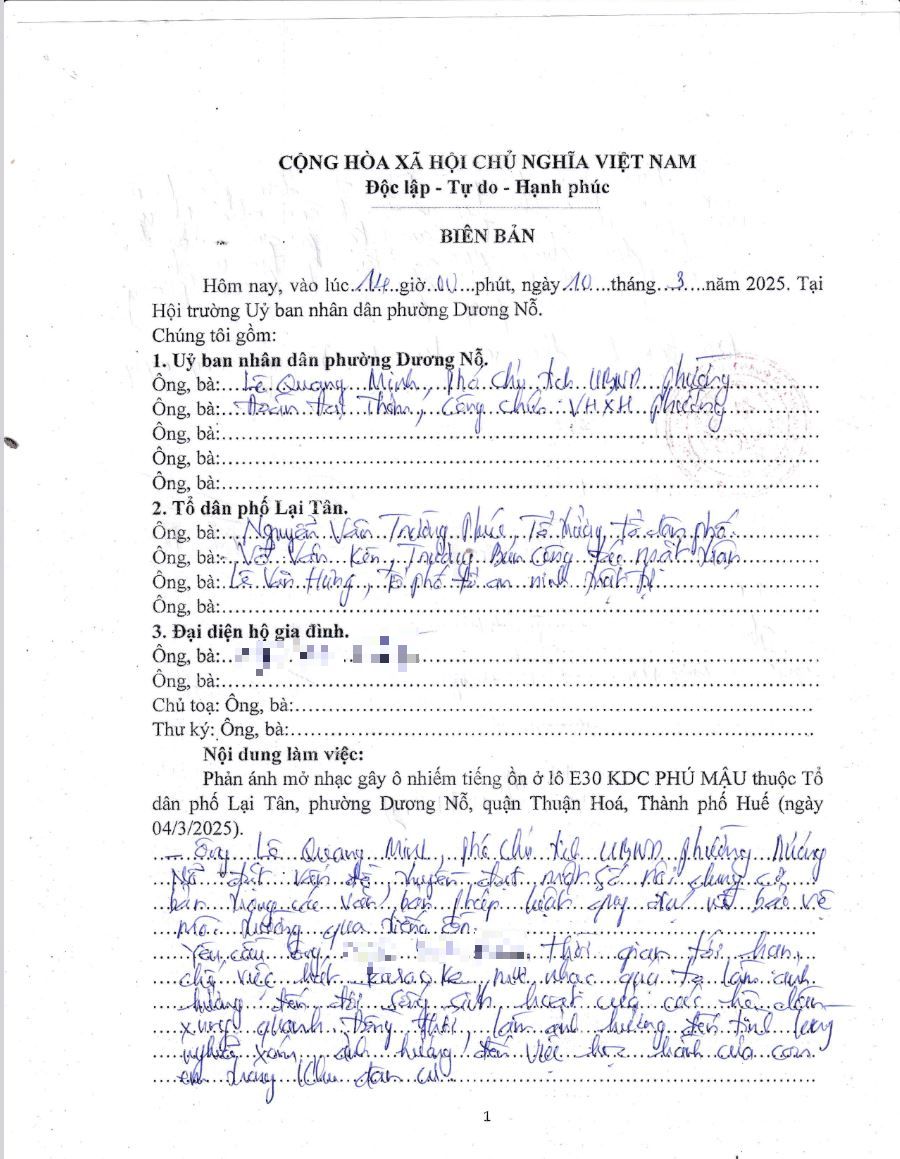 CỘNG HÒA XÃ HỘI CHỦ NGHĨA VIỆT NAM
Độc lập - Tự do - Hạnh phúc
BIÊN BẢN
Hôm nay, vào lúc 14 giờ 00 phút, ngày 10 tháng 3 năm 2025. Tại
Hội trường Uỷ ban nhân dân phường Dương Nỗ.
Chúng tôi gồm:
1. Uỷ ban nhân dân phường Dương Nỗ.
Ông, bà: Lê Quang Minh, Phó Chủ tịch UBND phường
Ông, bà: Công chức VHXH phường
Ông, bà:
Ông, bà:
Ông, bà:
2. Tổ dân phố Lại Tân.
Ông, bà: Nguyễn Văn Trường Phúc, Tổ trưởng tổ dân phố
Ông, bà: Võ Văn Kên, Trưởng Ban Công tác mặt trận
Ông, bà: Lê Văn Hưng, Tổ phó tổ an ninh trật tự
Ông, bà:
3. Đại diện hộ gia đình.
Ông, bà:
Ông, bà:
Chủ toạ: Ông, bà:
Thư ký: Ông, bà:
Nội dung làm việc:
Phản ánh mở nhạc gây ô nhiễm tiếng ồn ở lô E30 KDC PHÚ MẬU thuộc Tổ
dân phố Lại Tân, phường Dương Nỗ, quận Thuận Hoá, Thành phố Huế (ngày
04/3/2025).
- Ông Lê Quang Minh, Phó Chủ tịch UBND phường Dương
Nỗ đặt vấn đề, truyền đạt một số nội dung cơ
bản trong các văn bản pháp luật quy định về bảo vệ
môi trường qua tiếng ồn.
Yêu cầu ông thời gian tới hạn
chế việc hát karaoke, mở nhạc quá to làm ảnh
hưởng đến đời sống sinh hoạt của các hộ dân
xung quanh đồng thời làm ảnh hưởng đến tình làng
nghĩa xóm, ảnh hưởng đến việc học hành của con
em trong khu dân cư.
1